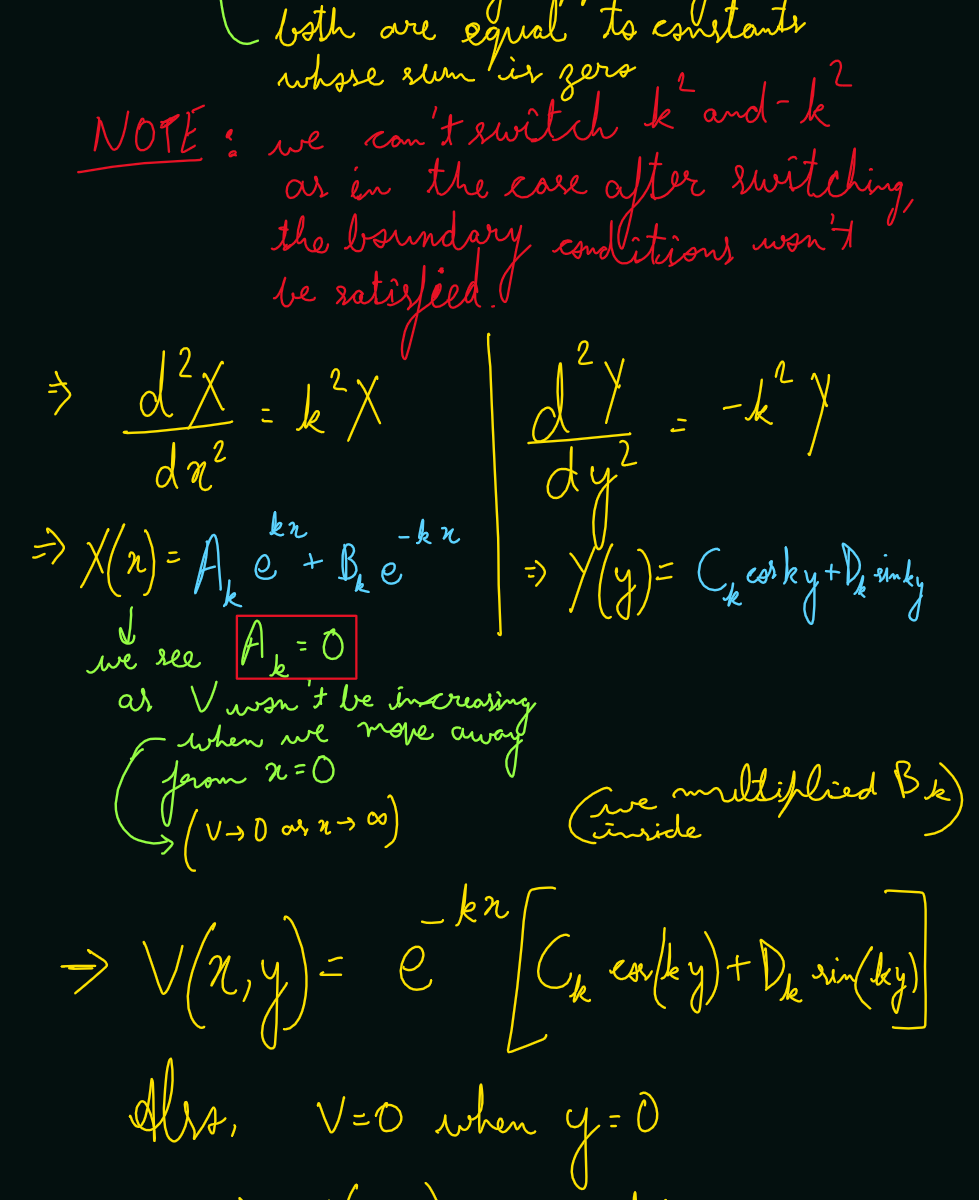 both are equal to constants
whose sum is zero
NOTE : we can't switch k² and -k²
as in the case after switching,
the boundary conditions won't
be satisfied.
⇒ d²X/dx² = k²X | d²Y/dy² = -k²Y
⇒ X(x) = A_k e^{kx} + B_k e^{-kx} | ⇒ Y(y) = C_k cos ky + D_k sin ky
we see A_k = 0
as V won't be increasing
when we move away
from x = 0
(V → 0 as x → ∞)
(we multiplied B_k)
inside
→ V(x,y) = e^{-kx} [C_k cos(ky) + D_k sin(ky)]
Also, V = 0 when y = 0